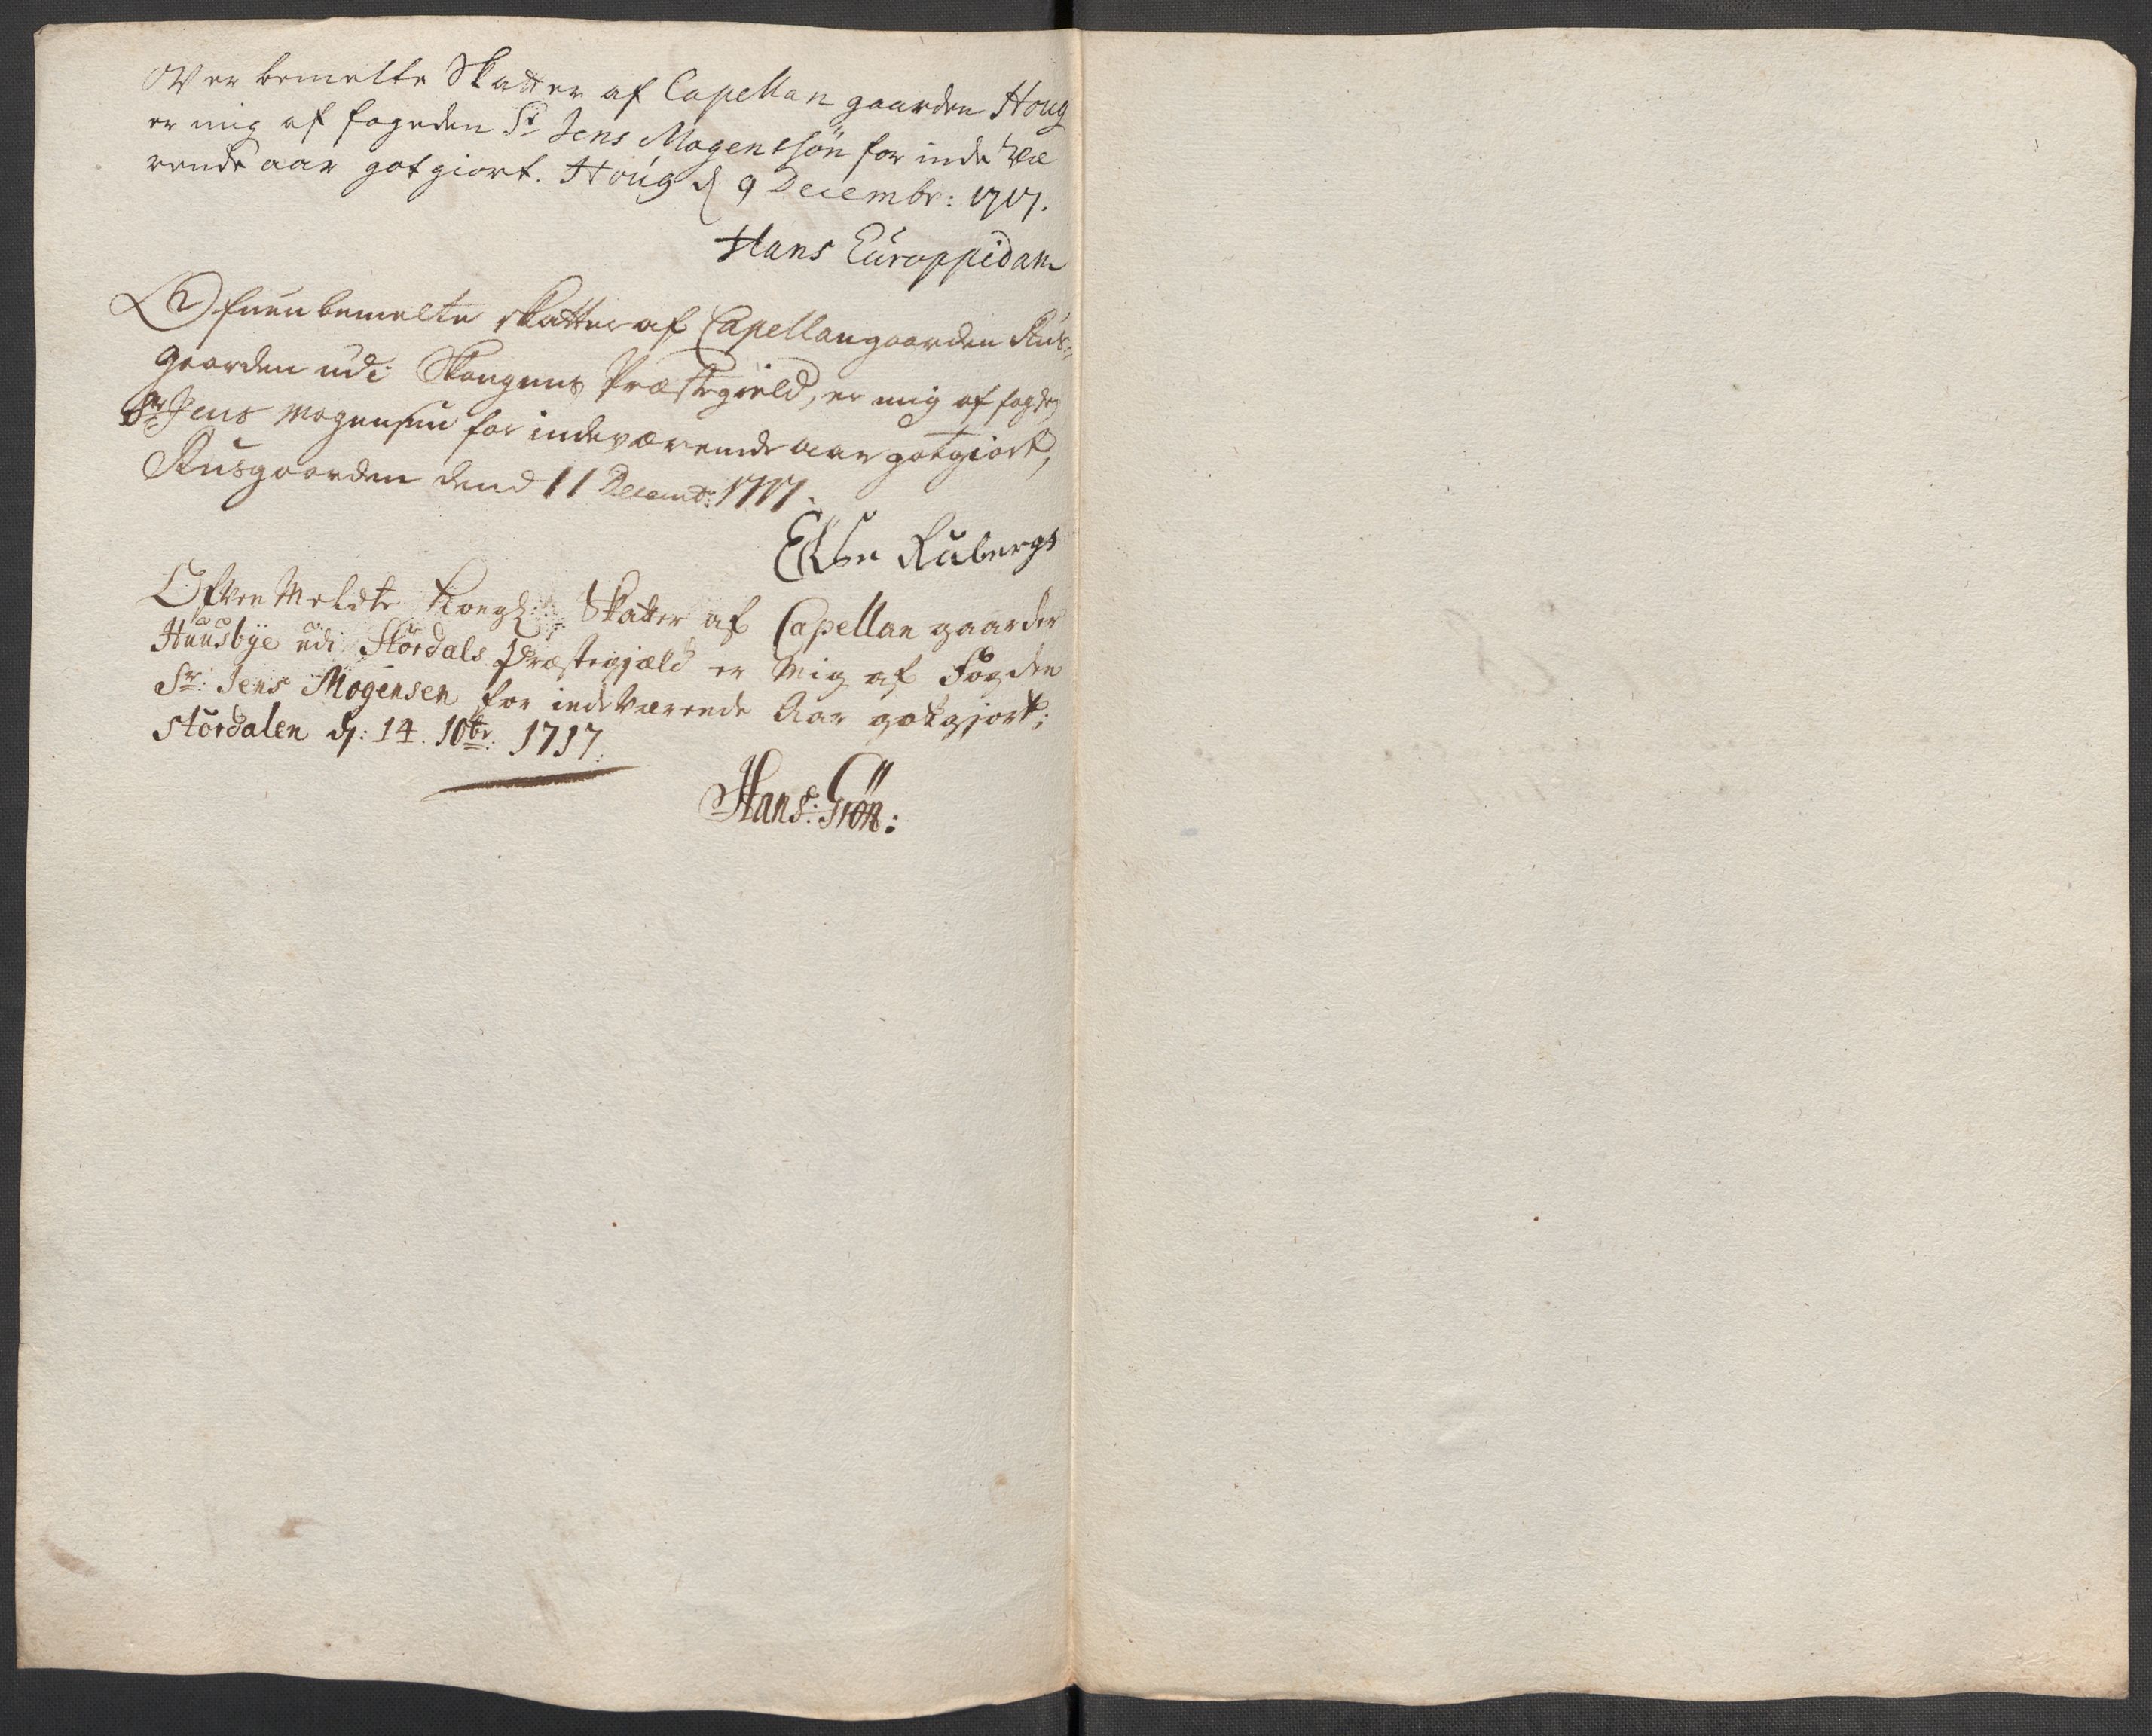 Over bemelte Skatter af Capellan gaarden Houg
er mig af fogeden Sr Jens Mogensøn for inde væ
rende aar gotgiort. Houg d 9 Decembr: 1717.
Hans Europpidam
Ofuenbemelte skatter af Capellangaarden Rus-
gaarden udi Skougens Præstegield, er mig af fogden
Sr Jens Mogensen for indeværende aar gotgiort,
Rusgaarden dend 11 Decemb: 1717.
Rubergs
Ofven Meldte Kongl: Skatter af Capellan gaarden
Huusbye udi Størdals Præstegjæld er Mig af Fogden
Sr: Jens Mogensen for indeværende Aar gotgjort;
Størdalen d: 14. 10br: 1717.
Hans: Grøn: